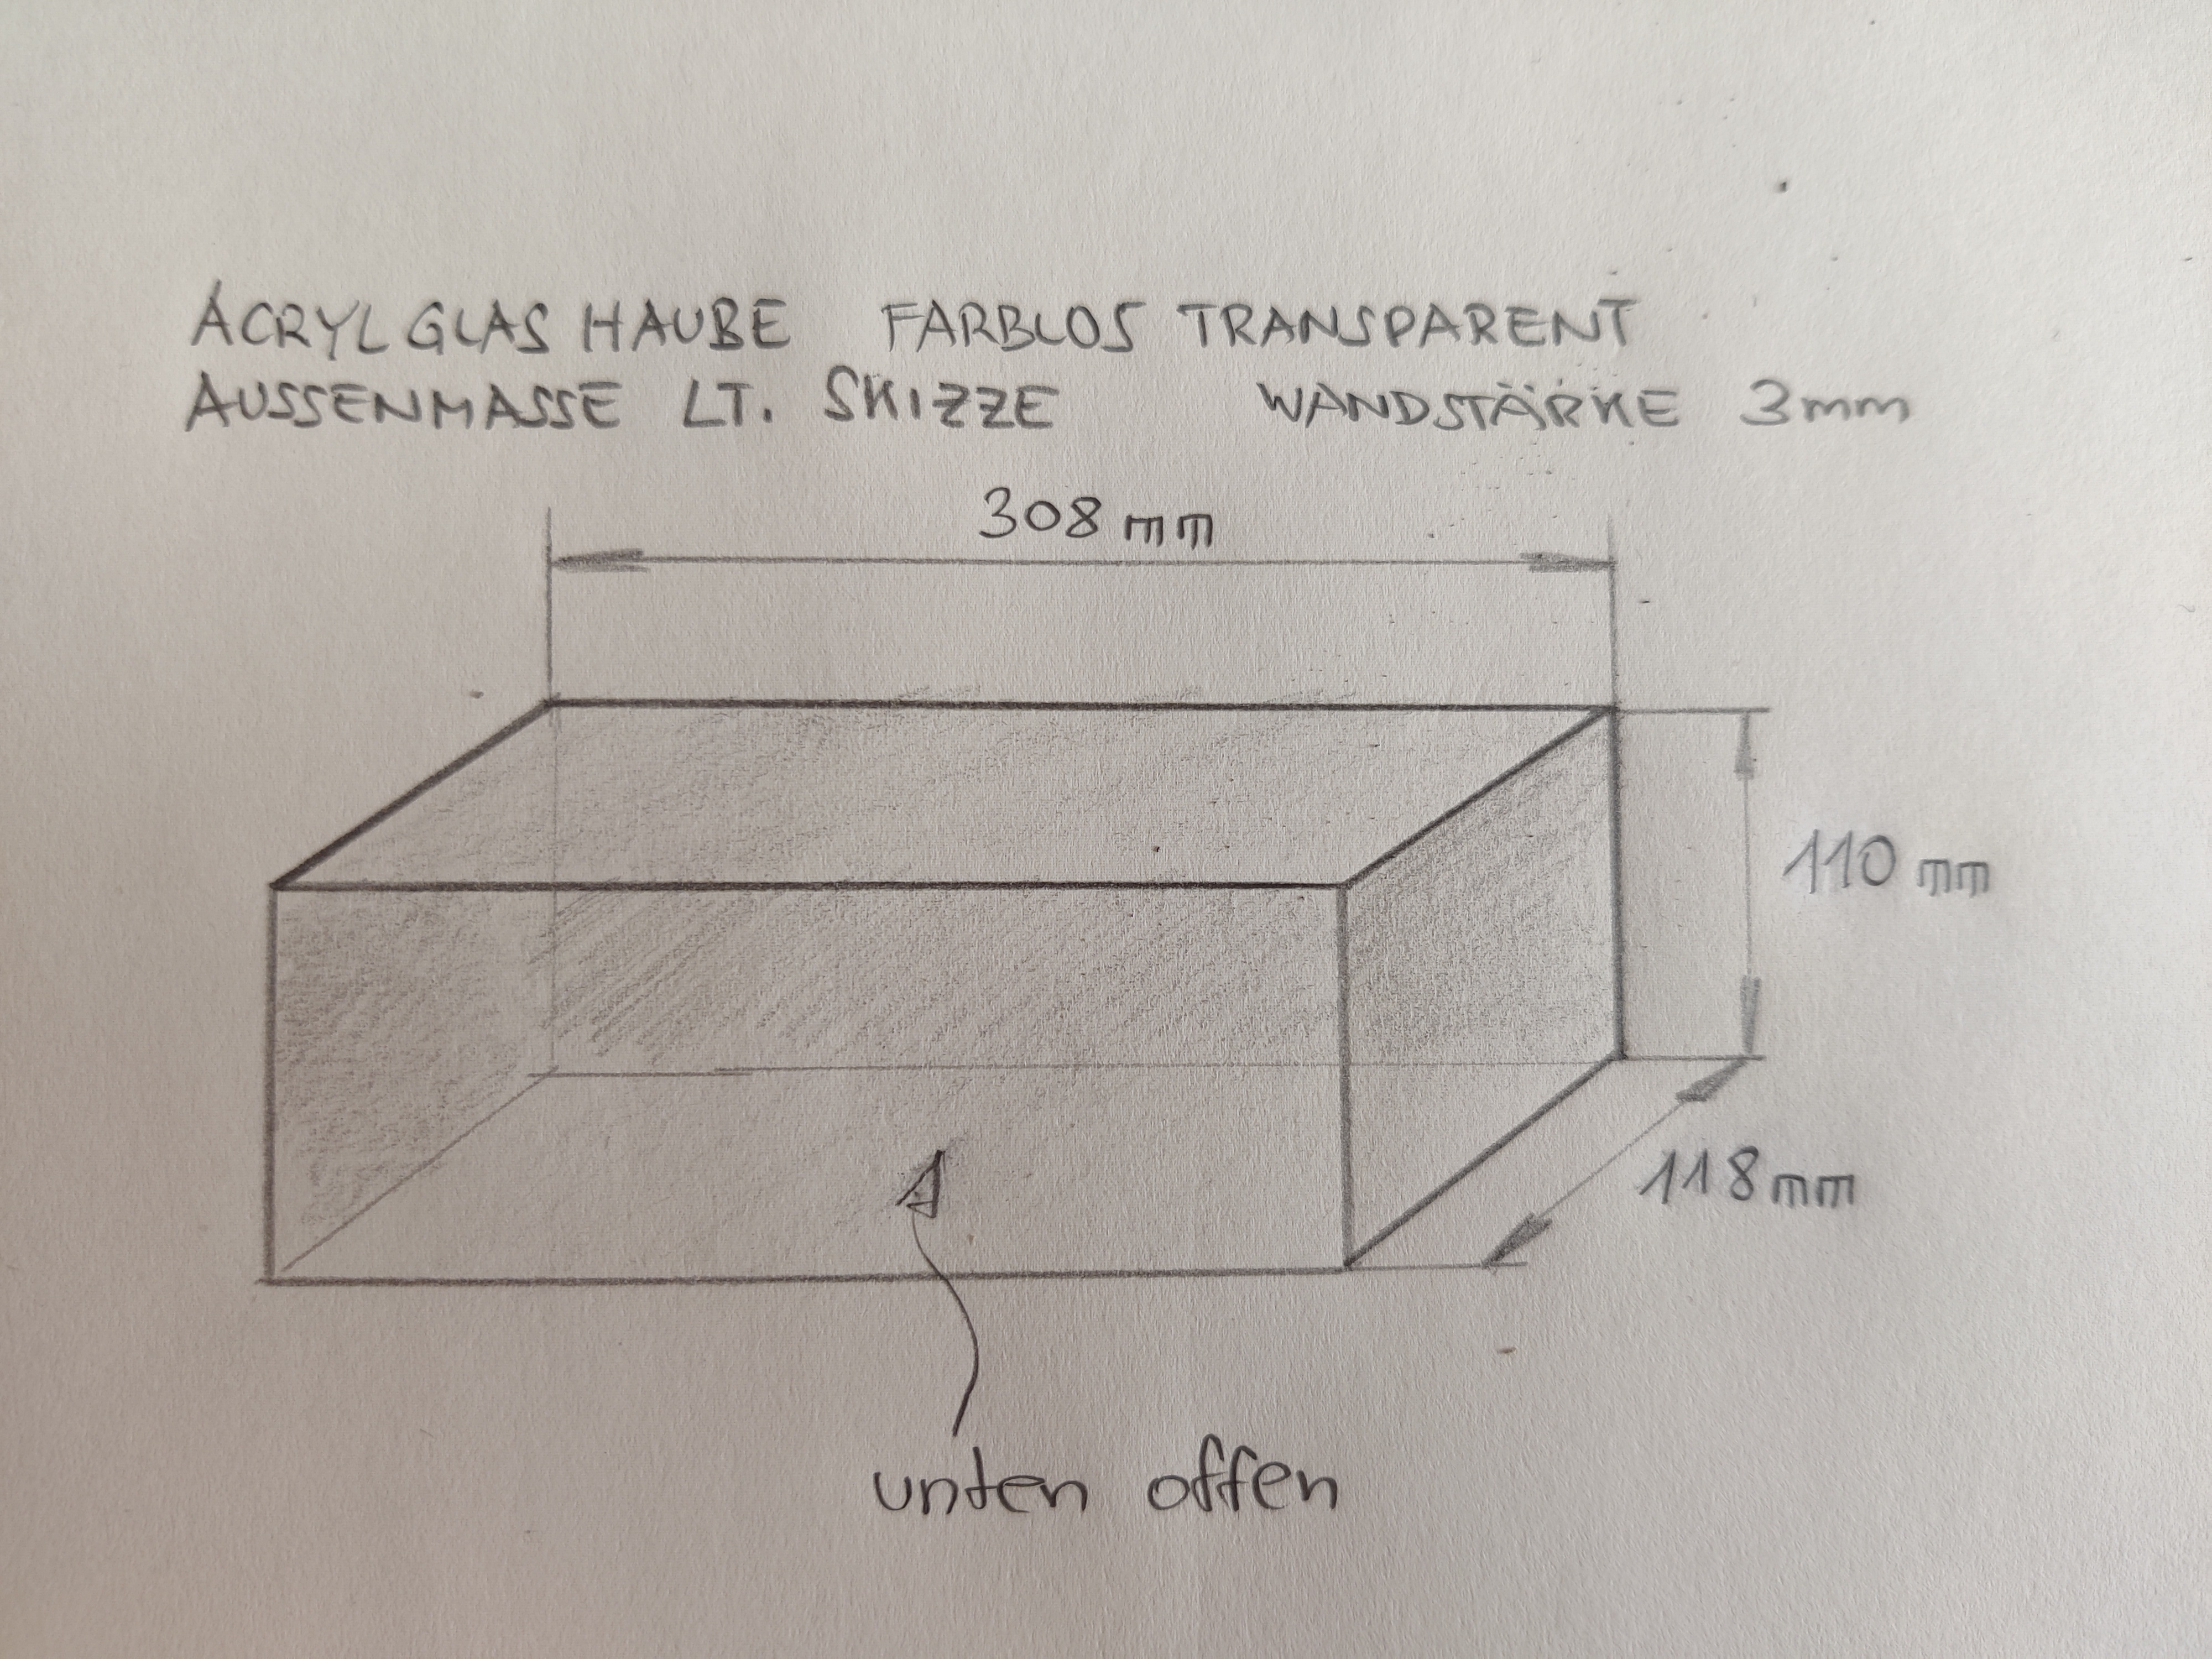 ACRYLGLAS HAUBE FARBLOS TRANSPARENT
AUSSENMASSE LT. SKIZZE WANDSTÄRKE 3mm
308 mm
110 mm
118 mm
unten offen